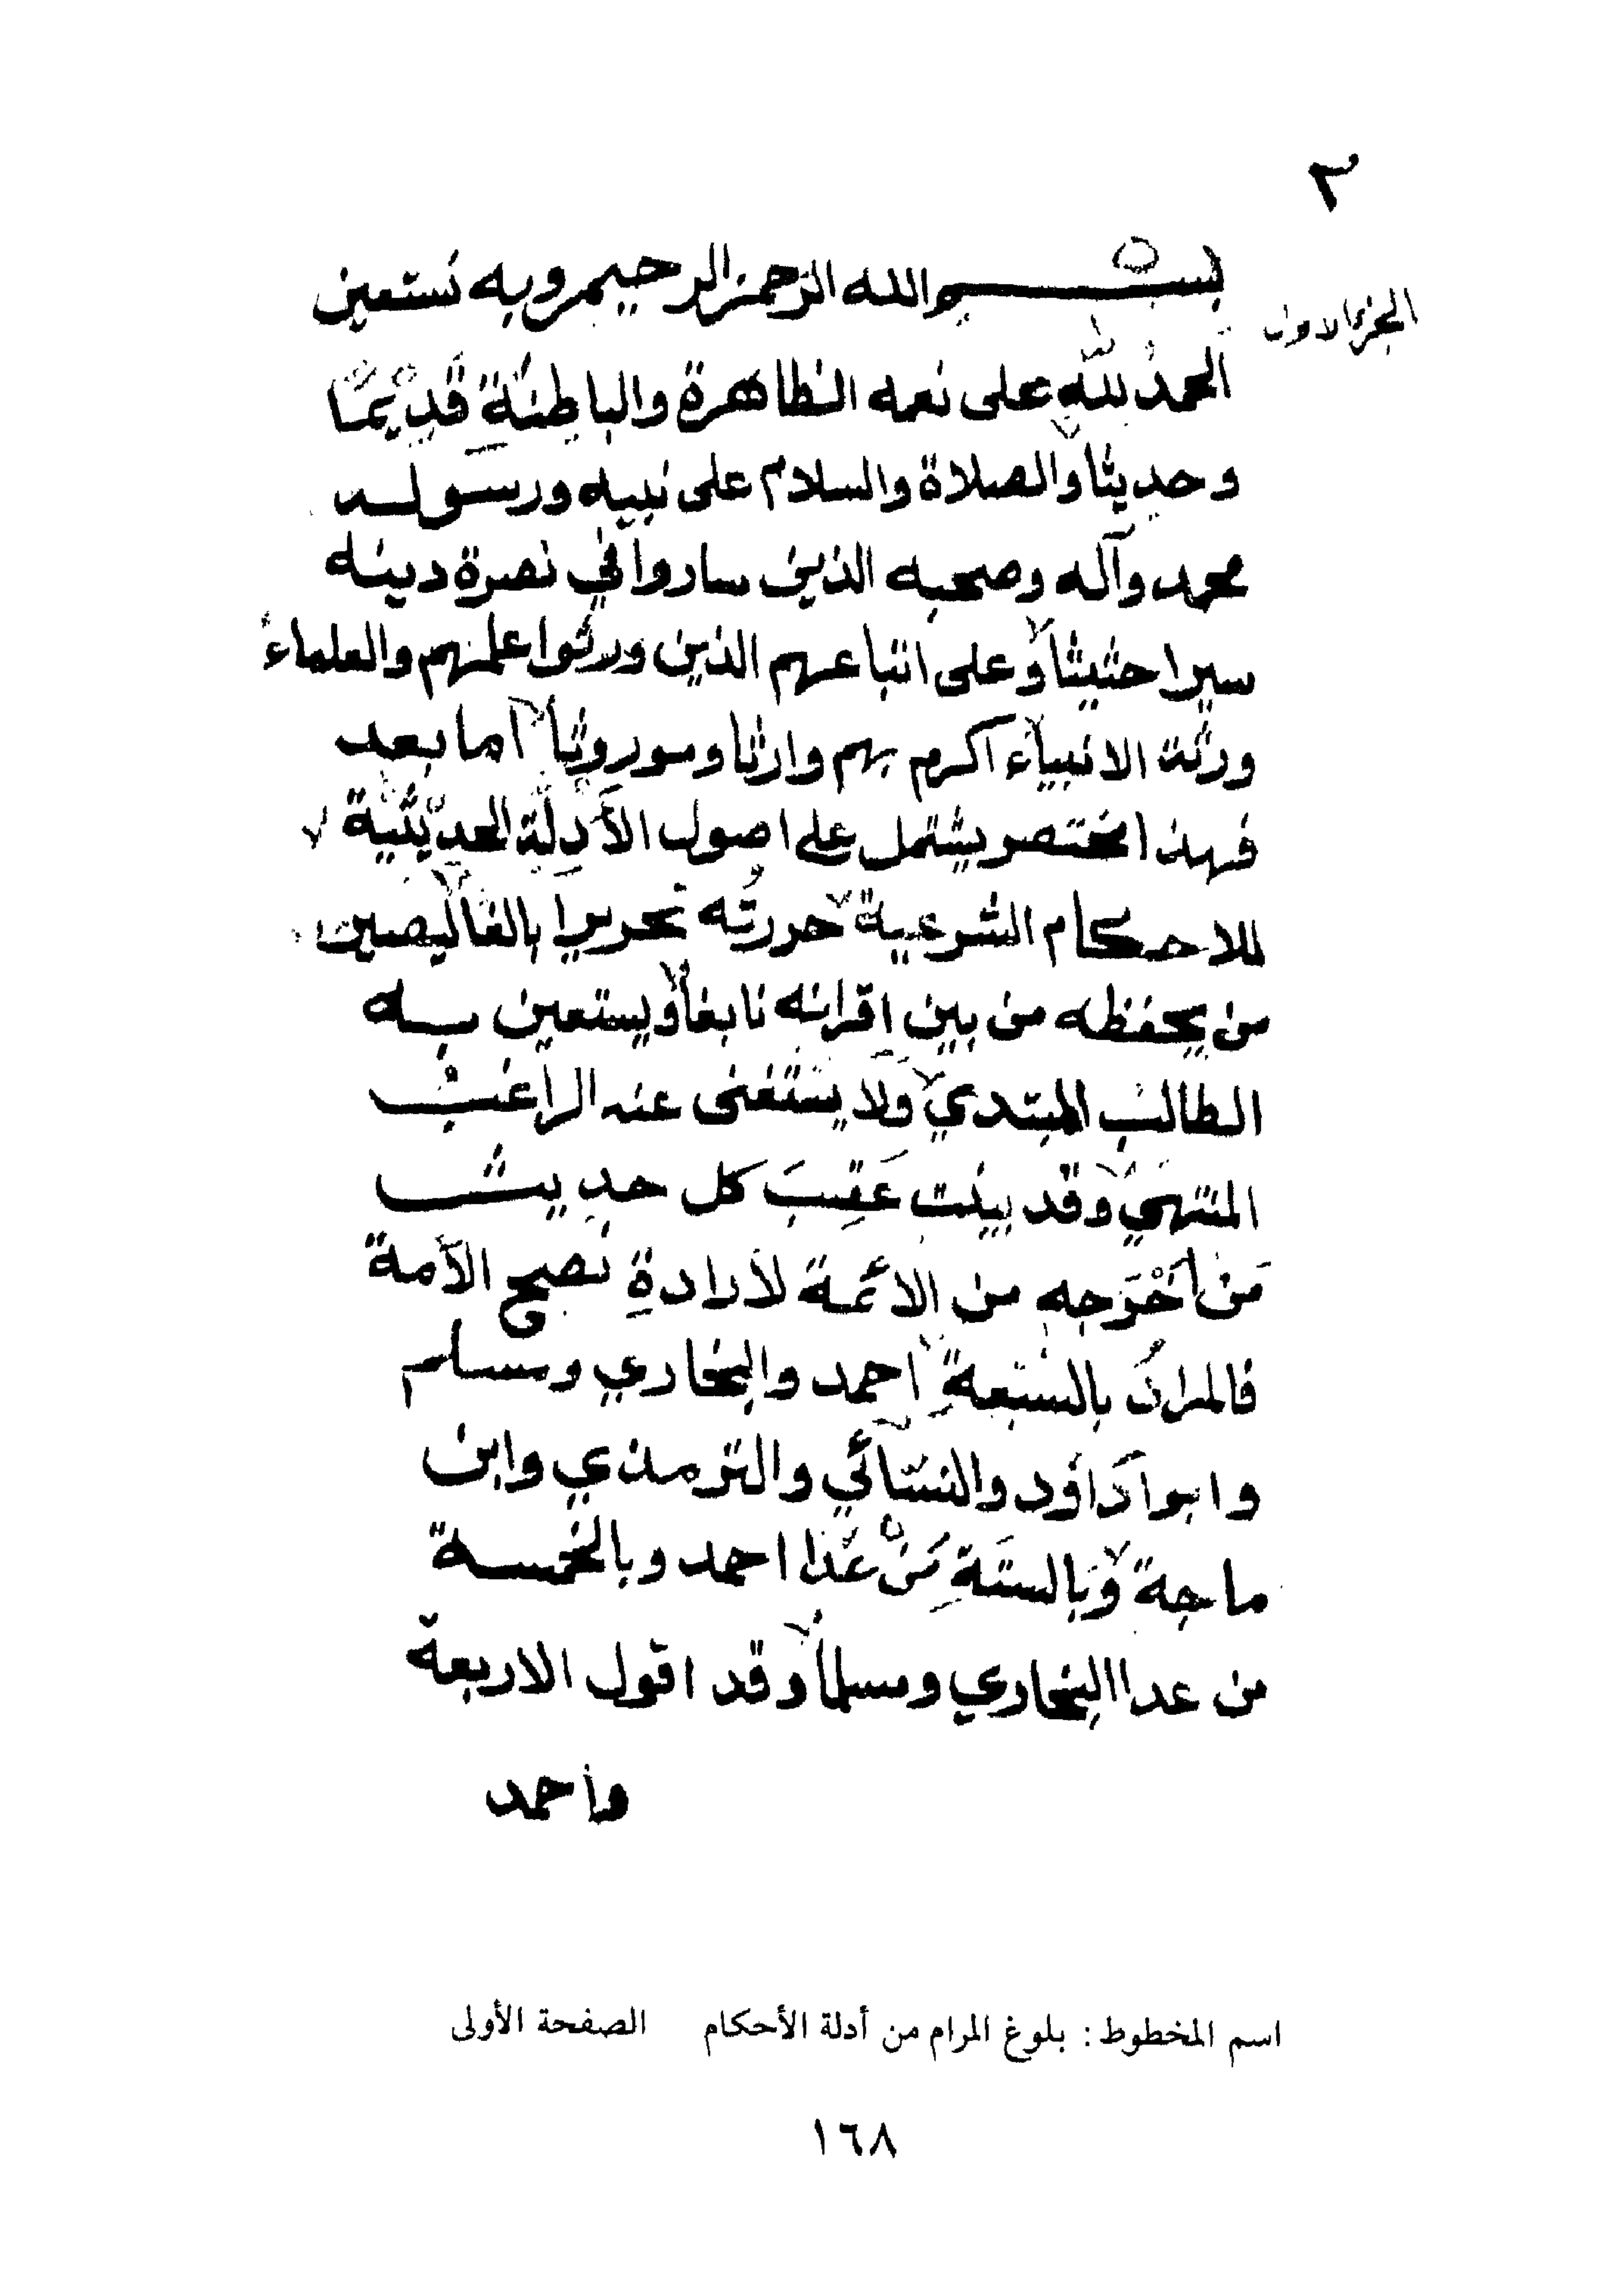 ٢
الجزء الاول
بسم الله الرحمن الرحيم وبه نستعين
الحمدُ للّٰه على نعمه الظاهرة والباطنَةِ قَدِيْمًا
وحديثا والصلاة والسلام على نبيه ورسوله
محمد وآله وصحبه الذين ساروا في نصرة دينه
سيرا حثيثا وعلى اتباعهم الذين ورثوا علمهم والعلماءُ
ورثة الانبياء اكرم بهم وارثا وموروثا اما بعد
فهذا مختصر يشتمل على اصول الأَدِلَّةِ الحديْثيَّة
للاحكام الشرعية حررتُه تحريرا بالغا ليصير
من يحفظه من بين اقرانه نابغا ويستعين به
الطالب المبتدي ولا يَسْتَغنى عنه الراغبُ
المنتهي وقد بينت عَقِبَ كل حديث
مَنْ اَخْرَجه من الائمة لارادةِ نصح الأمة
فالمرادُ بالسَّبعةِ احمد والبخاري ومسلم
وابوا دَاوُد والنسَّائي والترمذي وابن
ماجة وبالستَّةِ مَنْ عَدَا احمد وبالخمسة
من عدا البخاري ومسلما وقد اقول الاربعة
واحمد
اسم المخطوط: بلوغ المرام من أدلة الأحكام الصفحة الأولى
١٦٨